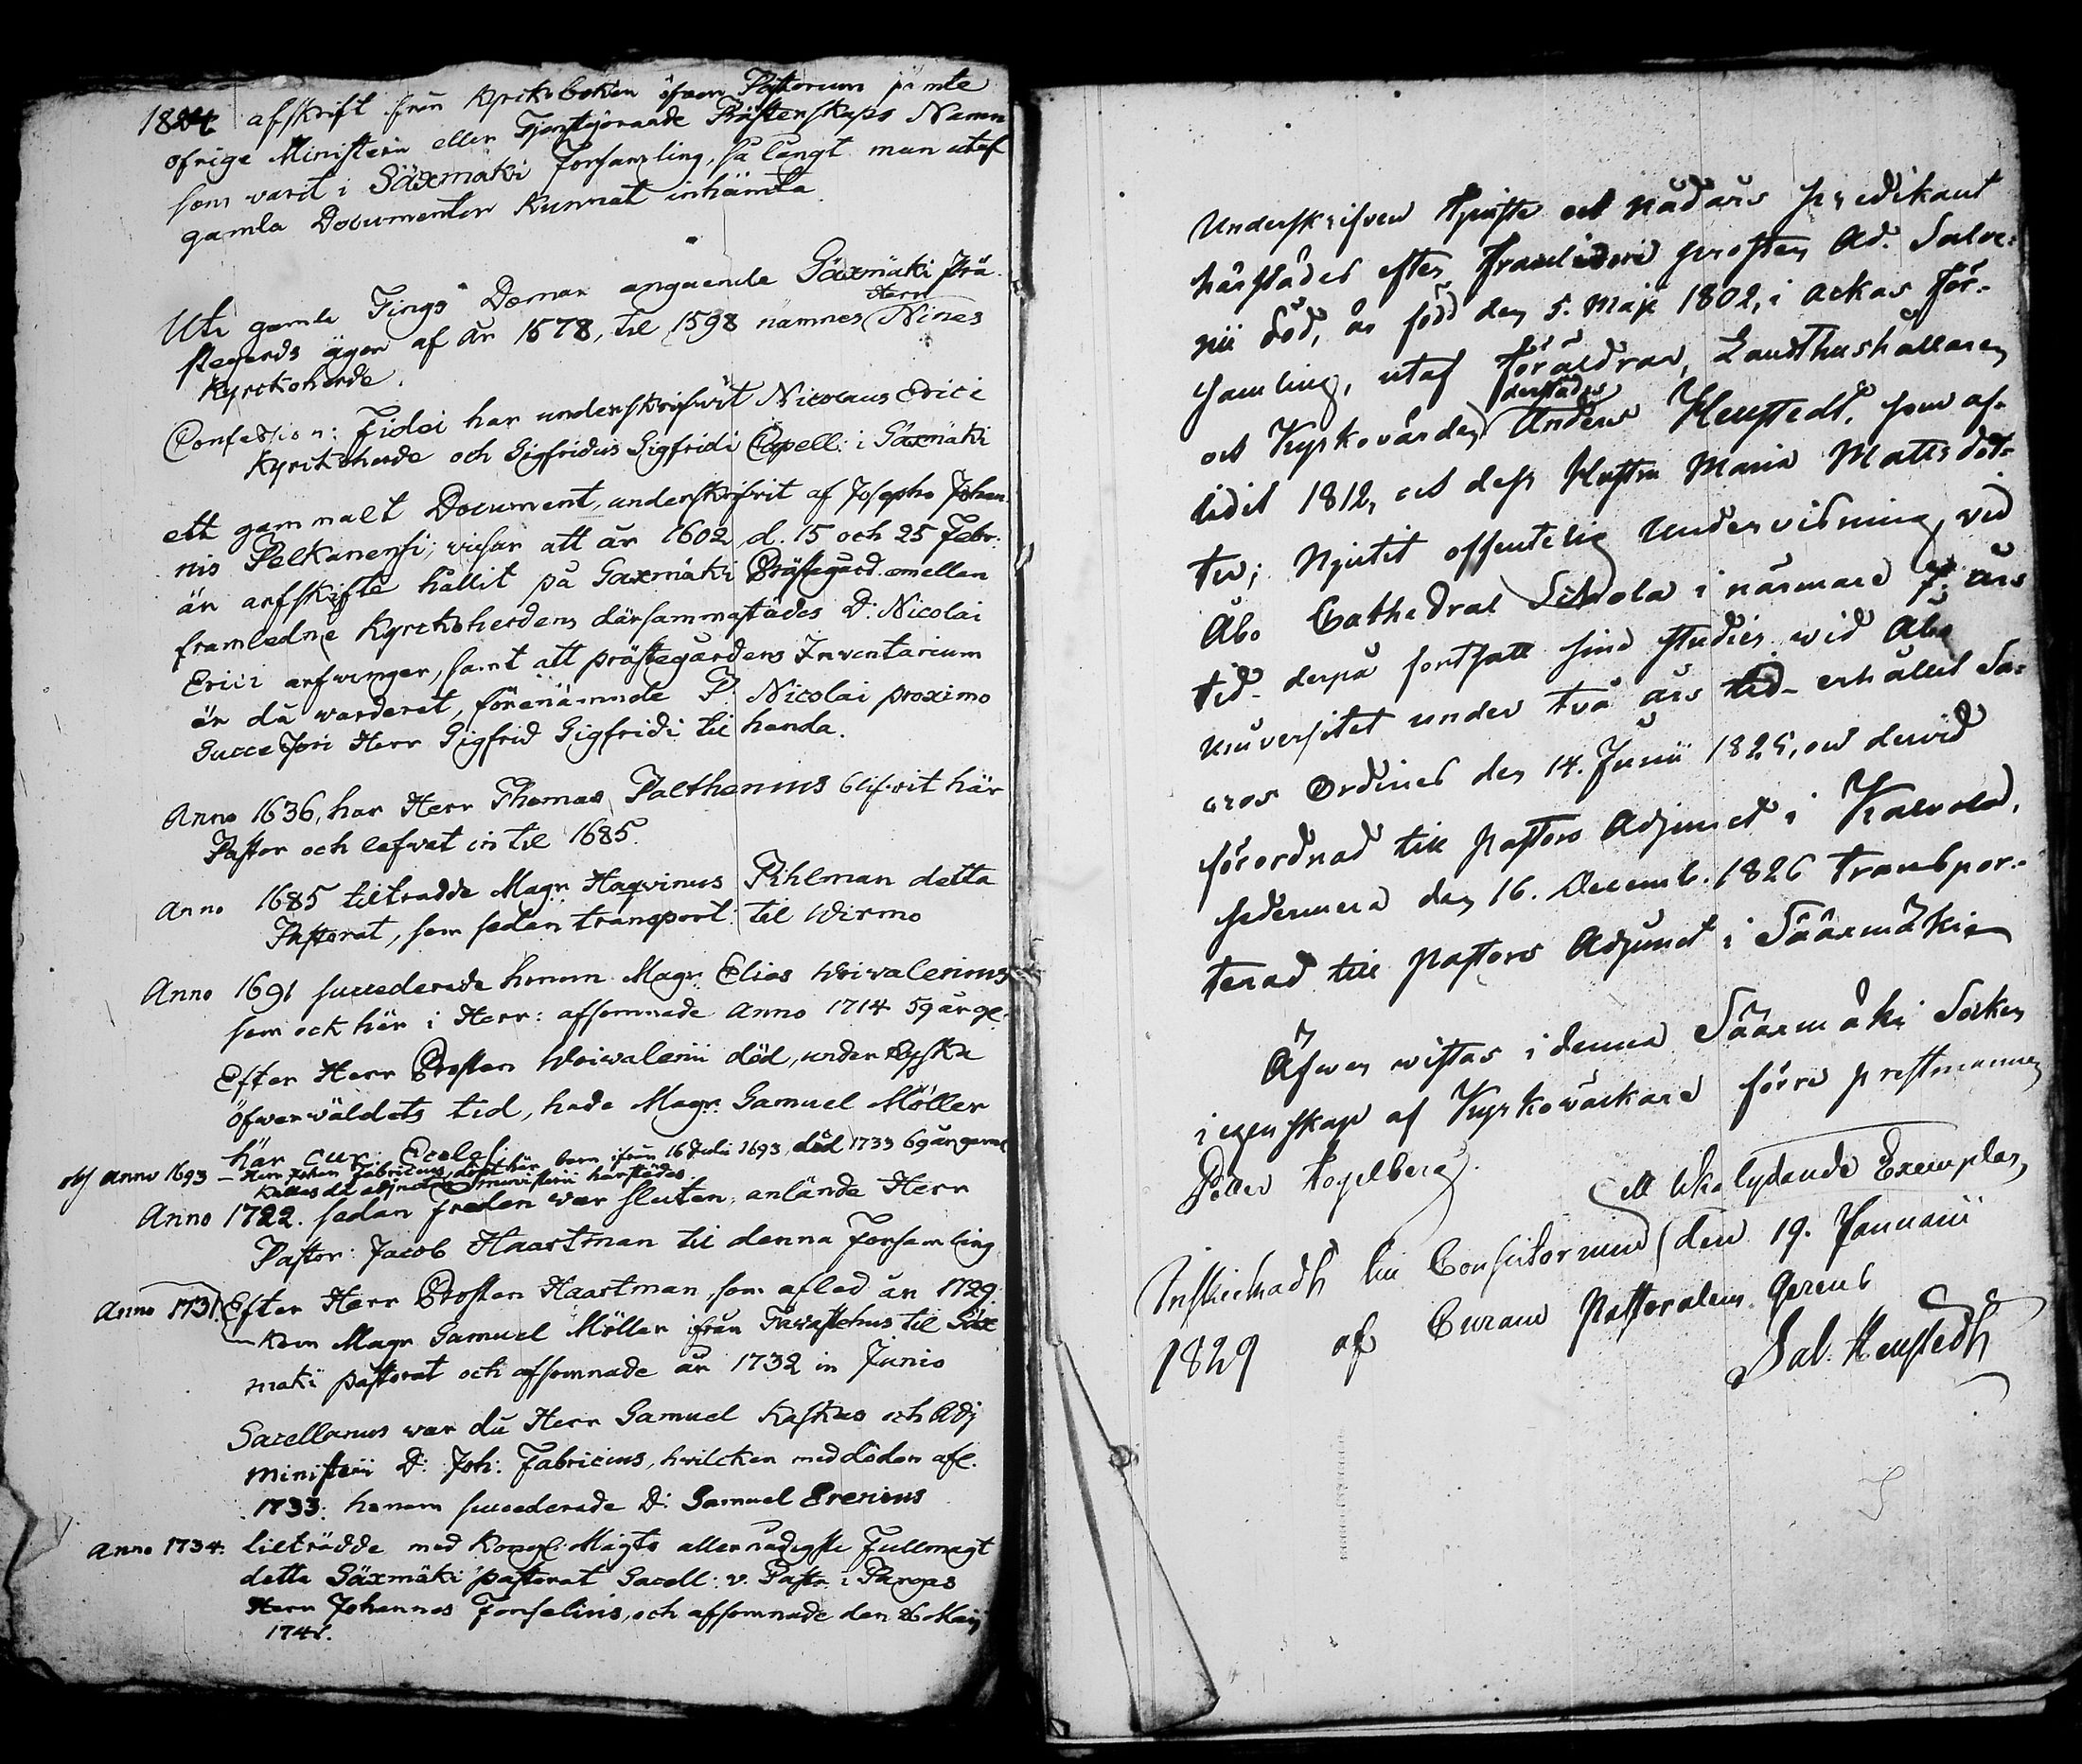 1824 afskrift från Kyrkoboken öfver Pastorum jämte
öfrige Ministerii eller Tjenstgörande Prästerskaps Namn
som varit i Säxmäki Forsamling, så långt man utaf
gamla Documenter kunnat inhämta.
Uti gamla Tings Domar angaende Säxmäki Prä-
stegards ägor af År 1578, til 1598 nämnes Herr Nines
Kyrckoherde.
Confession: Fidei har underskrifwit Nicolaus Erici
Kyrckoherde och Sigfridus Sigfridi Capell: i Säxmäki
ett gammalt Document, underskrifvit af Josepho Johan
nis Pelkanensi; visar att år 1602 d. 15 och 25 Febr:
är arfskifte hållit på Saxmäki Prästegård emellan
framledne Kyrckoherdens därsammastädes D: Nicolai
Erici arfwinger, samt att prästegårdens Inventarium
är då warderat, förenämnde D: Nicolai proximo
Successori Herr Sigfrid Sigfridi til handa.
Anno 1636, har Herr Thomas Palthenius blifvit här
Pastor och lefwat in til 1685.
Anno 1685 tiltradde Magr: Haqvinus Pihlman detta
Pastorat, som sedan transport: til Wirmo
Anno 1691 succederade honom Magr: Elias Woivalenius
som ock här i Herr: afsomnade Anno 1714 59 år ge:
Efter Herr Prosten Woivalenii död, under Ryska
öfwerwäldets tid, hade Magr: Samuel Möller
här cur: Eccles:
obs Anno 1693 – Herr Johan Fabricius här born ifrån 16 Julii 1693, död 1733 69 år gammal
Kallas då adjunctus ministerii härstädes
Anno 1722. sedan freden war sluten, anlände Herr
Pastor: Jacob Haartman til denna Forsamling
Anno 1731. Efter Herr Prosten Haartman, som afled år 1729
kom Magr Samuel Möller ifrån Tawastehus til Säx
mäki pastorat och afsomnade år 1732 in Junio
Sacellanus war då Herr Samuel Kaskus och Adj
Ministerii D: Joh: Fabricius, hvilcken med döden afl.
1733: honom succederade D: Samuel Erenius
Anno 1734: tilträdde med Kongl: Maijts allernådigste Fullmagt
detta Säxmäki pastorat Sacell: v. Past: i Pargas
Herr Johannes Forselius, och afsomnade den 26 Maij
1741.
Underskrifven Tjenste och nådårs predikant
härstädes efter framlidne prosten Ad. Salve-
nii död, är född den 5. Maji 1802, i Ackas för-
samling, utaf föräldrar, Landthushållaren
och Kyrkovärden derstädes Anders Henstedt, som af-
lidit 1812, och dess Hustru Maria Mattsdot-
ter; Njutit offentelig undervisning, vid
Åbo Cathedral Schola i närmare 7 års
tid – derpå fortsatt sine studier wid Åbo
universitet under två års tid – erhållit Sa-
cros Ordines den 14. Junii 1825, och dervid
förordnad till pastors Adjunct i Kalvola,
sedermera den 16. Decemb. 1826 transpor-
terad till Pastors Adjunct i Sääxmäki
Äfwen wistas i denna Sääxmäki Socken
i egenskap af Kyrkowäckare förre prestmannen
Peter Fogelberg.
ett lika lydande Exemplar,
Inskickadt till Consistorium den 19. Januarii
1829 af Curam Pastoralem Gerens
Sal. Henstedt